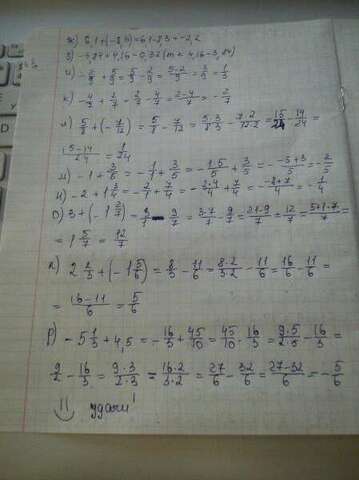 ж) 6,1+(-8,3)=6,1-8,3=-2,2
з) -3,84+4,16=0,32 (т.к 4,16-3,84)
и) -2/9+5/9=5/9-2/9=5-2/9=3/9=1/3
к) -4/7+2/7=2/7-4/7=2-4/7=-2/7
л) 5/8+(-7/12)=5/8-7/12=5·3/8·3-7·2/12·2=15/24-14/24=
15-14/24=1/24
м) -1+3/5=-1/1+3/5=-1·5/5+3/5=-5+3/5=-2/5
н) -2+1 3/4=-2/1+7/4=-2·4/4+7/4=-8+7/4=-1/4
о) 3+(-1 2/7)=3/1-9/7=3·7/7-9/7=21-9/7=12/7=5+1·7/7=
=1 5/7=12/7
п) 2 2/3+(-1 5/6)=8/3-11/6=8·2/3·2-11/6=16/6-11/6=
=16-11/6=5/6
р) -5 1/3+4,5=-16/3+45/10=45/10-16/3=9·5/2·5-16/3=
9/2-16/3=9·3/2·3-16·2/3·2=27/6-32/6=27-32/6=-5/6
удачи!